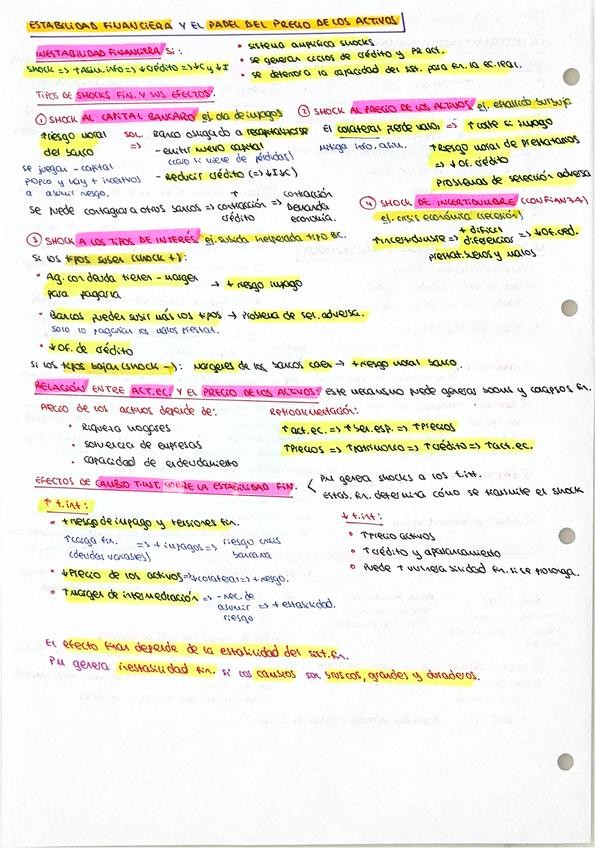 ESTABILIDAD FINANCIERA Y EL PAPEL DEL PRECIO DE LOS ACTIVOS
INESTABILIDAD FINANCIERA si:
• sistema amplifica shocks
• se generan ciclos de crédito y PR act.
• se deteriora la capacidad del sist. para fin. la ec. real.
SHOCK => ↑Asim. info => ↓crédito => ↓C y ↓I
TIPOS DE SHOCKS FIN. Y SUS EFECTOS.
① SHOCK AL CAPITAL BANCARIO ej. ola de impagos
↑riesgo moral del banco
se juegan - capital propio y hay + incentivos a asumir riesgo.
SOL. =>
Banco obligado a recapitalizarse
- emitir nuevo capital
(caro si viene de pérdidas)
- Reducir crédito (=> ↓I ↓C)
se puede contagiar a otros bancos => contracción crédito => contracción Demanda economía.
② SHOCK AL PRECIO DE LOS ACTIVOS ej. estallido burbuja
el colateral pierde valor => ↑coste si impago
mitiga info. asim.
↑Riesgo moral de prestatarios
=> ↓Of. crédito
Problemas de selección adversa
④ SHOCK DE INCERTIDUMBRE (CONFIANZA)
ej. crisis económica (recesión)
↑incertidumbre => + difícil diferenciar => ↓Of. cred.
prestat. buenos y malos
③ SHOCK A LOS TIPOS DE INTERÉS ej. subida inesperada tipo BC.
Si los tipos suben (shock +):
• Ag. con deuda tienen - margen para pagarla → + riesgo impago
• Bancos pueden subir más los tipos → Problema de sel. adversa.
solo lo pagarían los malos prestat.
• ↓Of. de crédito
Si los tipos bajan (shock -): márgenes de los bancos caen → +riesgo moral banco.
RELACIÓN ENTRE ACT. EC. Y EL PRECIO DE LOS ACTIVOS: este mecanismo puede generar booms y colapsos fin.
Precio de los activos depende de:
• Riqueza hogares
• solvencia de empresas
• capacidad de endeudamiento
Retroalimentación:
↑act. ec. => ↑ben. esp. => ↑Precios
↑Precios => ↑patrimonio => ↑crédito => ↑act. ec.
EFECTOS DE CAMBIO T.INT. SOBRE LA ESTABILIDAD FIN.
PM genera shocks a los t.int.
estab. fin. determina cómo se transmite el shock
↑ t.int:
• +riesgo de impago y tensiones fin.
↑carga fin. (deudas variables) => + impagos => riesgo crisis bancaria
• ↓Precio de los activos => ↓colateral => +riesgo.
• ↑margen de intermediación => - nec. de asumir riesgo => + estabilidad.
↓ t.int:
• ↑Precio activos
• ↑crédito y apalancamiento
• Puede ↑ vulnerabilidad fin. si se prolonga.
El efecto final depende de la estabilidad del sist. fin.
PM genera inestabilidad fin. si los cambios son bruscos, grandes y duraderos.